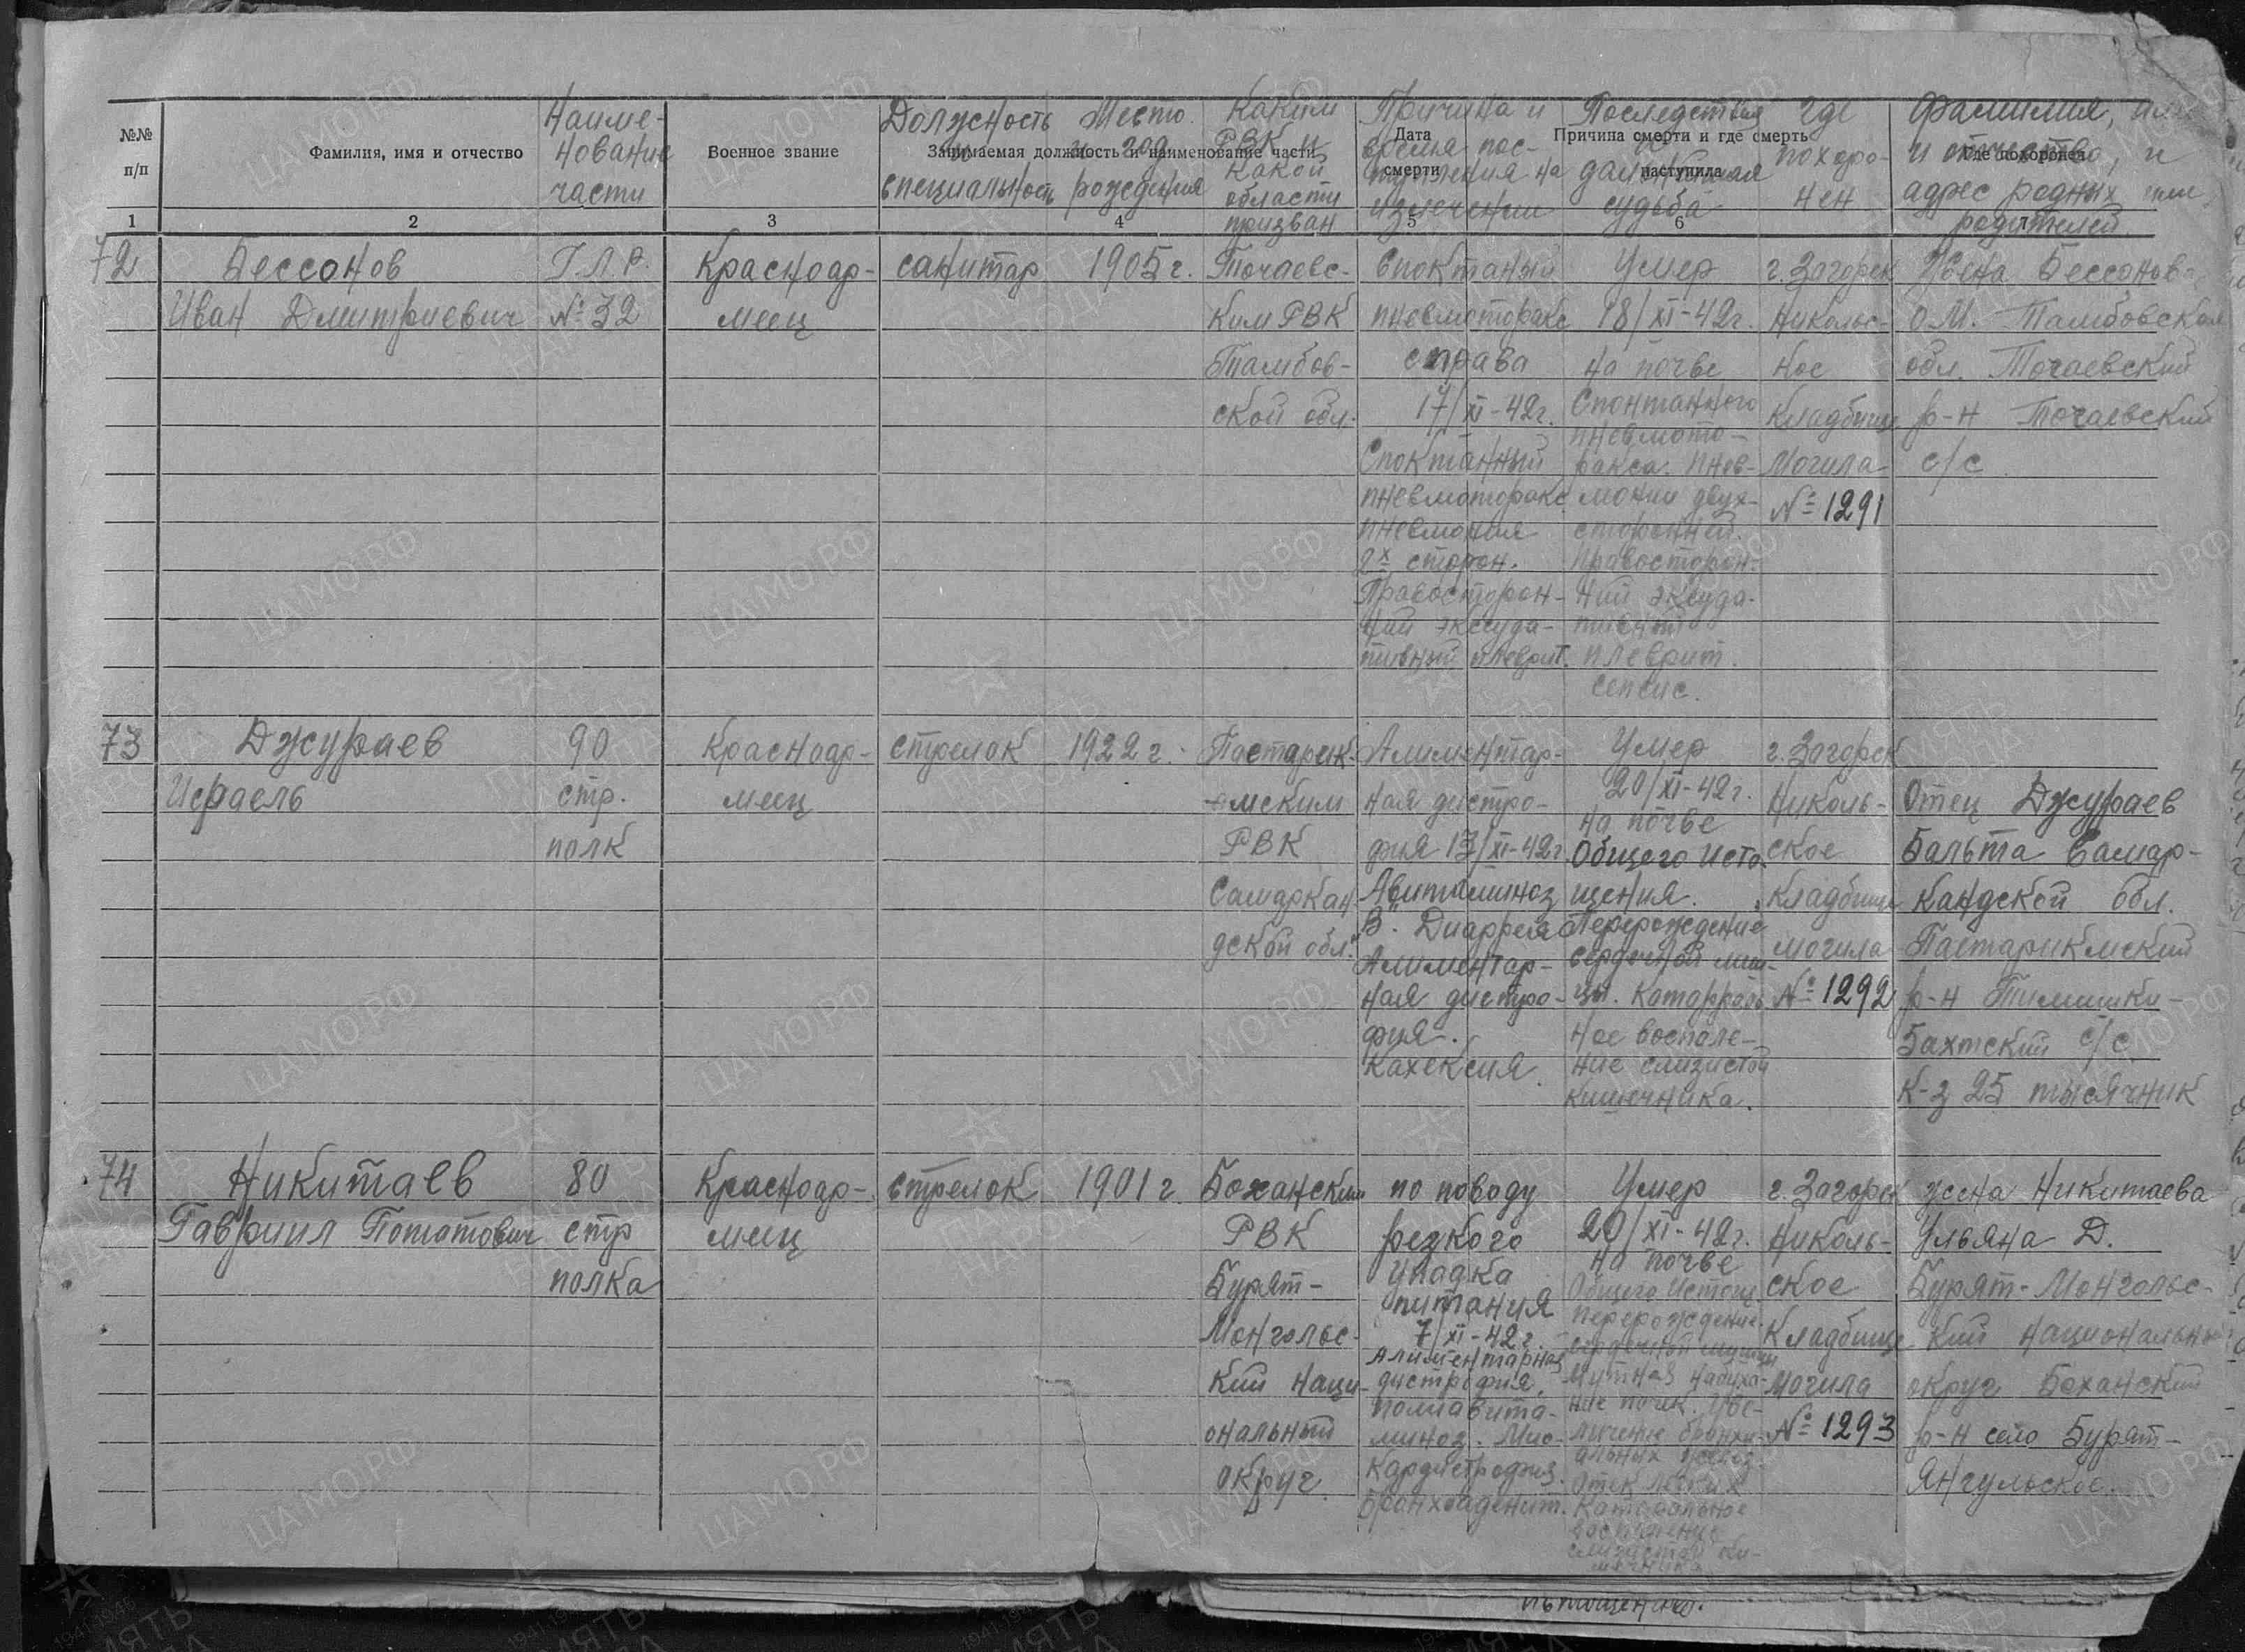 №№ п/п
Фамилия, имя и отчество
Наиме-
нование
части
Военное звание
Занимаемая должность и наименование части
Должность
и
специальность
Место
и год
рождения
Каким
РВК и
какой
области
призван
Дата
смерти
Причина и
время пос-
тупления на
излечении
Причина смерти и где смерть
наступила
Последствия
судьба
Где похоронен
где
похоро-
нен
Фамилия, имя
и отчество, и
адрес родных или
родителей
1 2 3 4 5 6
72
Бессонов
Иван Дмитриевич
Г.Л.Р.
№ 32
Красноар-
меец
санитар
1905 г.
Точаевс-
ким РВК
Тамбов-
ской обл.
Споктаный
пневмоторакс
справа
17/XI-42г.
Споктанный
пневмоторакс
пневмония
2х сторон.
Правосторон-
ний экссуда-
тивный плеврит.
Умер
18/XI-42г.
на почве
Спонтанного
пневмото-
ракса. Пнев-
монии двух-
сторонней.
Правосторон-
ний экссуда-
тивный
плеврит.
сепсис.
г. Загорск
Никольс-
кое
Кладбище
Могила
№ 1291
Жена Бессонова
О.М. Тамбовская
обл. Точаевский
р-н Точаевский
с/с
73
Джураев
Исраель
90
стр.
полк
Красноар-
меец
стрелок
1922 г.
Пастарик-
мским
РВК
Самаркан
дской обл.
Алиментар-
ная дистро-
фия 13/XI-42г.
Авитаминоз
"В". Диаррея
Алиментар-
ная дистро-
фия.
Кахексия.
Умер
20/XI-42г.
на почве
Общего исто-
щения.
Перерождение
сердечной мыш-
цы. Катарраль
ное воспале-
ние слизистой
кишечника.
г. Загорск
Николь-
ское
Кладбище
могила
№ 1292
Отец Джураев
Бальта Самар-
кандской обл.
Пастарикмский
р-н Тимишки-
Бахтский с/с
К-з 25 тысячник
74
Никитаев
Гавриил Потатович
80
стр
полка
Красноар-
меец
стрелок
1901 г.
Боханским
РВК
Бурят-
Монгольс-
кий наци-
ональный
округ.
по поводу
резкого
упадка
питания
7/XI-42г.
Алиментарная
дистрофия,
полиавита-
миноз. Мио-
кардистрофия.
Бронхоаденит.
Умер
20/XI-42г.
на почве
Общего истощ.
перерождение
сердечной мышцы
Мутная набуха-
ние почек. Уве-
личение бронхи-
альных желез.
Отек легких
Катаральное
воспаление
слизистой ки-
шечника
г. Загорск
Николь-
ское
Кладбище
могила
№ 1293
жена Никитаева
Ульяна Д.
Бурят-Монгольс-
кий национальный
округ Боханский
р-н село Бурят-
Янгульское.